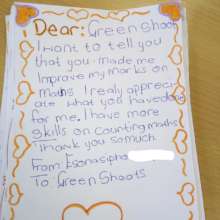 Dear: Green Shoots
I want to tell you
that you made me
Improve my marks on
Maths I realy appreci
ate what you have done
for me. I have more
skills on counting maths
Thank you so much
From Esonasipho
To Green Shoots